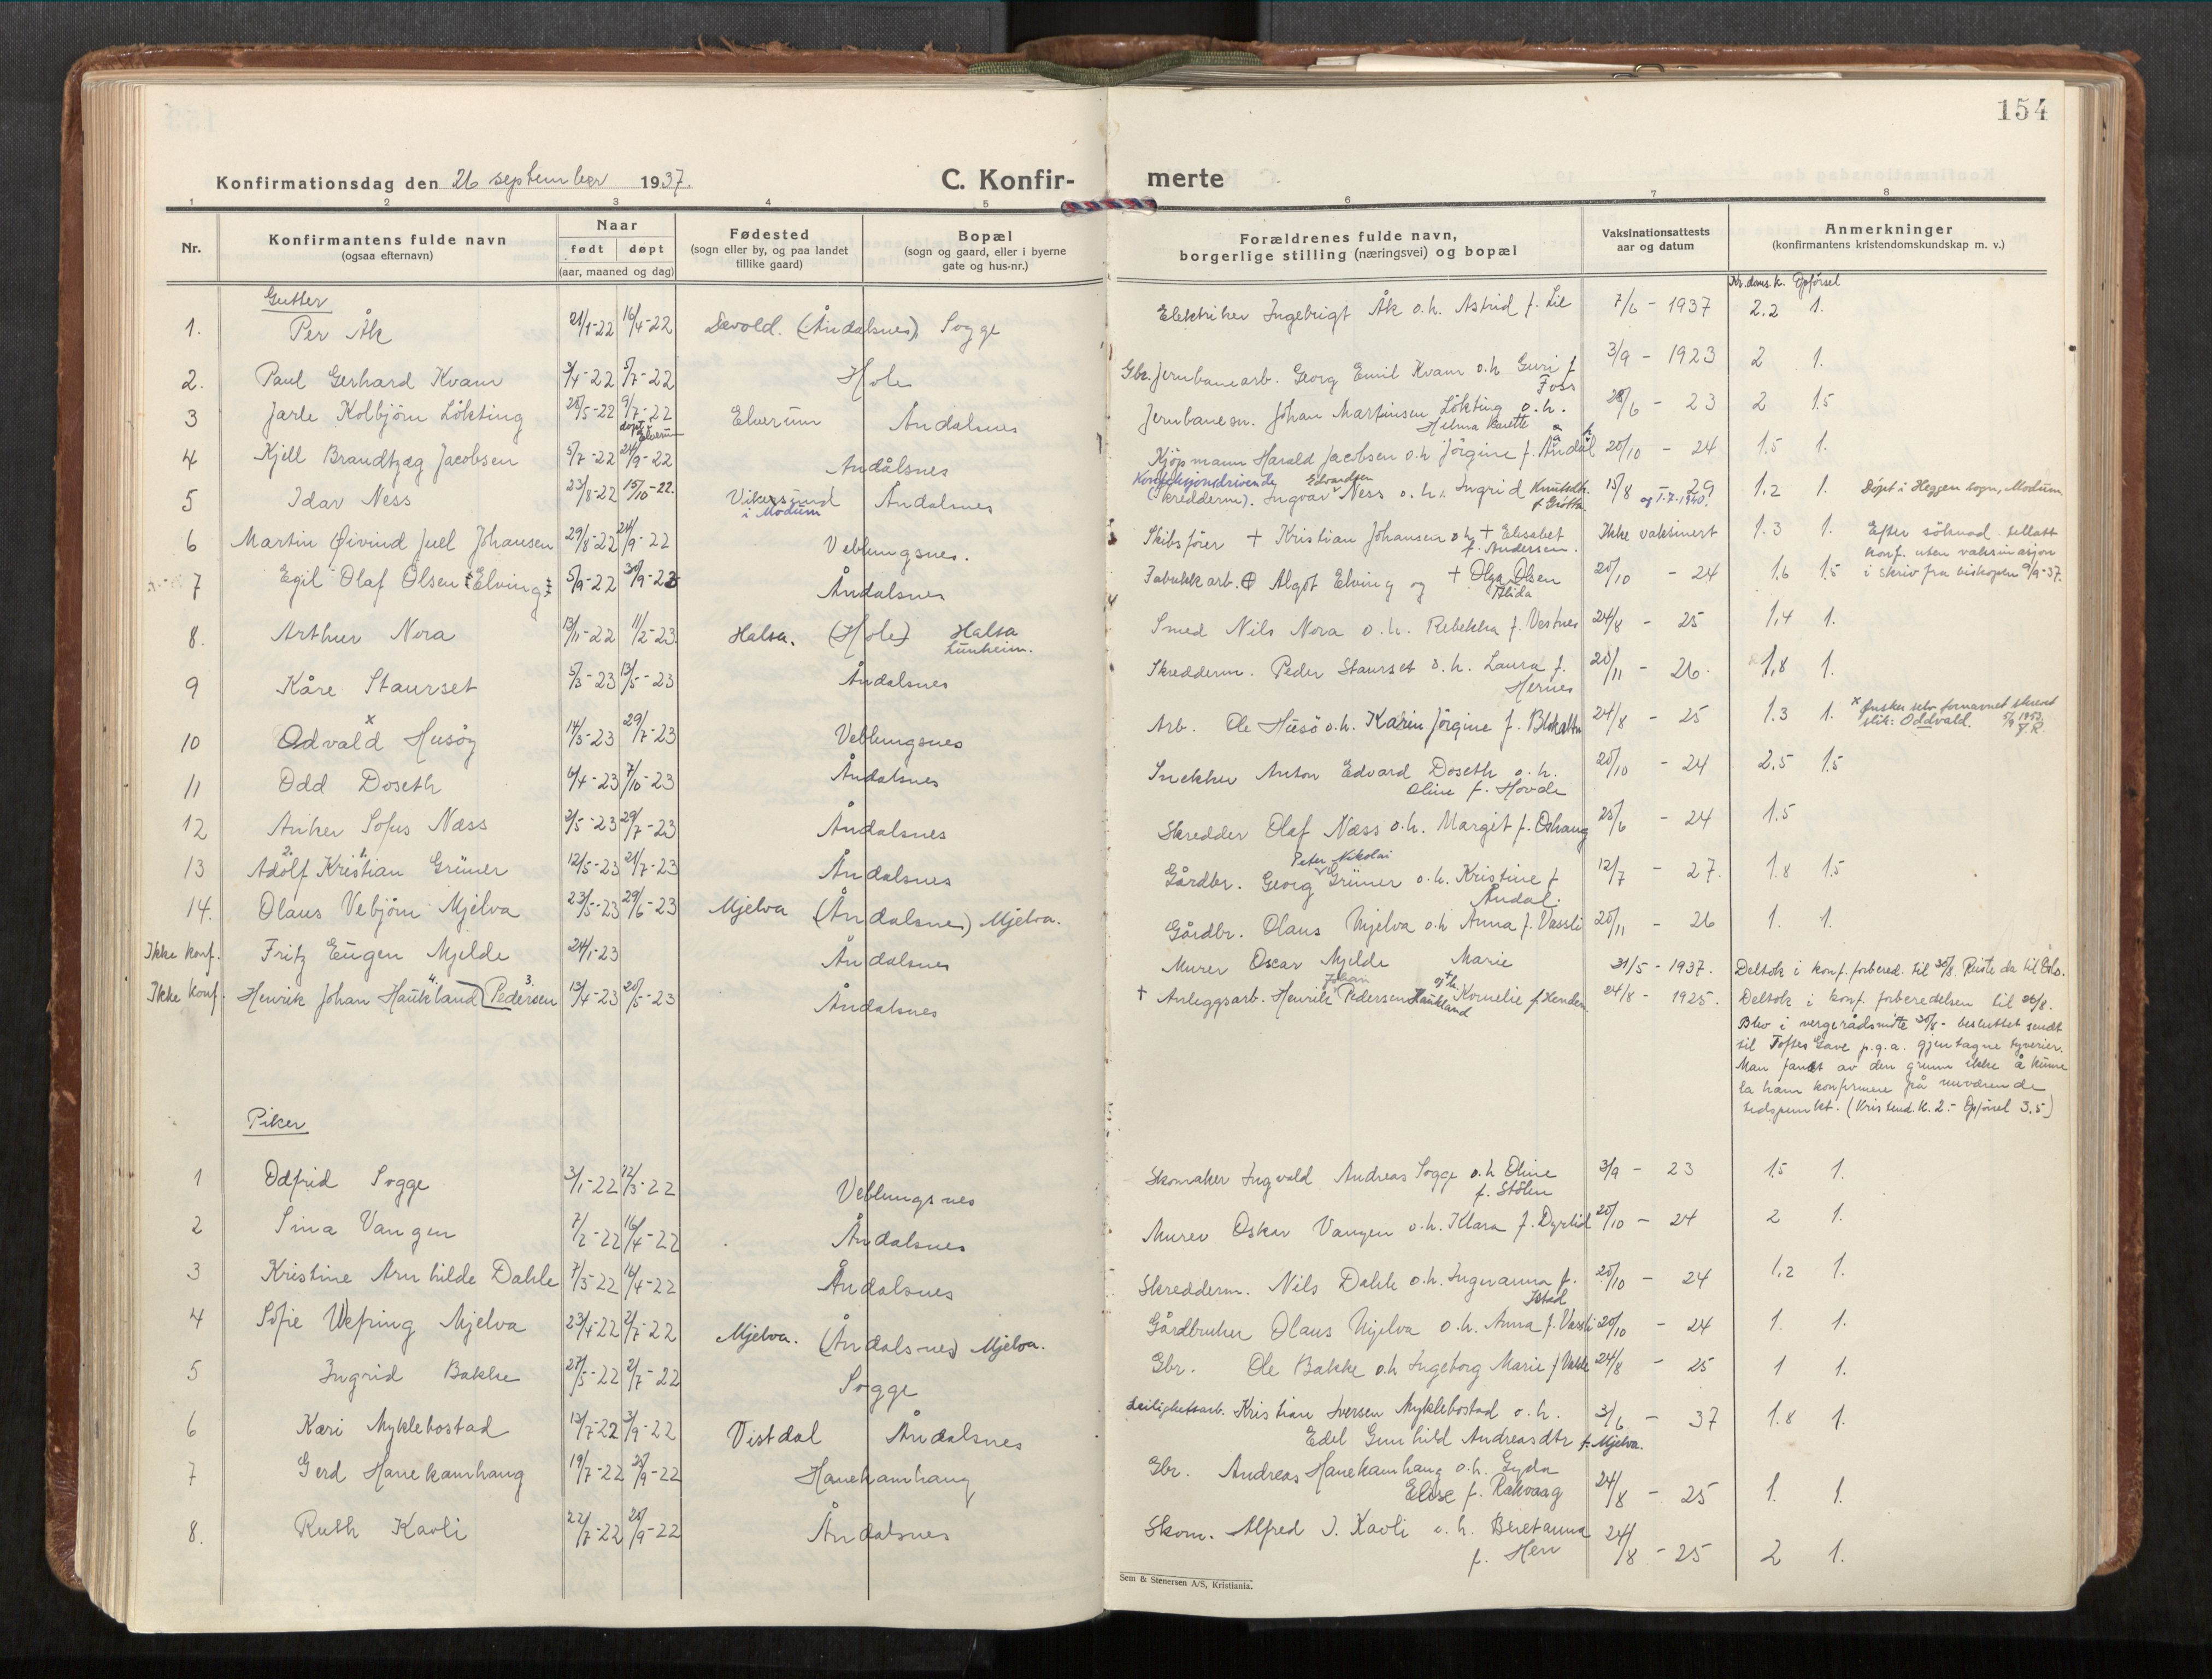 154
Konfirmationsdag den 26 september 1937. C. Konfir- merte
1 2 3 4 5 6 7 8
Nr. Konfirmantens fulde navn (ogsaa efternavn) Naar født døpt (aar, maaned og dag) Fødested (sogn eller by, og paa landet tillike gaard) Bopæl (sogn og gaard, eller i byerne gate og hus-nr.) Forældrenes fulde navn, borgerlige stilling (næringsvei) og bopæl Vaksinationsattests aar og datum Anmerkninger (konfirmantens kristendomskundskap m. v.)
Kr.doms.k. Opførsel
Gutter
1. Per Åk 21/1-22 16/4-22 Devold. (Åndalsnes) Sogge Elektriker Ingebrigt Åk o.h. Astrid f. Lie 7/6 - 1937 2.2 1.
2. Paul Gerhard Kvam 3/4-22 5/7-22 Hole Gbr. Jernbanearb. Georg Emil Kvam o.h. Guri f. Foss 3/9 - 1923 2 1.
3 Jarle Kolbjörn Lökting 28/5-22 9/7-22 döpt Elverum Elverum Åndalsnes Jernbanesn. Johan Martinsen Lökting o.h. Helma Karette 28/6 - 23 2 1.5
4 Kjell Brandtzæg Jacobsen 5/7-22 24/9-22 Andålsnes Kjöpmann Harald Jacobsen o.h. Jörgine f. Åndal 20/10 - 24 1.5 1.
5 Idar Ness 23/8-22 15/10-22. Vikersund i Modum Åndalsnes Konfeksjonsdrivende (skredderm). Ingvar Edvardsen Ness o.h. Ingrid Knutsdtr. f. Grötta 15/8 - 29 og 1.7.1940. 1.2 1. Döpt i Heggen sogn, Modum.
6 Martin Øivind Juel Johansen 29/8-22 24/9-22 Veblungsnes. Skibsförer + Kristian Johansen o.h. + Elisabet f. Andersen. Ikke vaksinert 1.3 1. Efter söknad tillatt konf. uten vaksinasjon i skriv fra biskopen 9/9-37.
7 Egil Olaf Olsen Elving 5/9-22 30/9-23 Åndalsnes Fabrikkarb. Algot Elving og + Olga Olsen Alida 20/10 - 24 1.6 1.5
8. Arthur Nora 13/11-22 11/2-23 Halsa. (Hole) Halsa Lunheim. Smed Nils Nora o.h. Rebekka f. Vestnes 24/8 - 25 1.4 1.
9 Kåre Staurset 5/3-23 13/5-23 Åndalsnes Skredderm. Peder Staurset o.h. Laura f. Hernes 20/11 - 26. 1.8 1.
10 Odvald x Husöy 14/3-23 29/7-23 Veblungsnes Arb. Ole Husö o.h. Karin Jörgine f. 24/8 - 25 1.3 1. x Önsker selv fornavnet skrevet slik: Oddvald. 5/9 1952. J.R.
11 Odd Doseth 6/4-23 7/10-23 Åndalsnes Snekker Anton Edvard Doseth o.h. Oline f. Hovde 20/10 - 24 2.5 1.5
12 Anker Sofus Næss 2/5-23 29/7-23 Åndalsnes Skredder Olaf Næss o.h. Margit f. Oshaug 25/6 - 24 1.5
13 Adolf 2. Kristian 1. Grüner 12/5-23 21/7-23 Åndalsnes Gårdbr. Georg Peter Nikolai Grüner o.h. Kristine f. Åndal. 12/7 - 27. 1.8 1.5
14. Olaus Vebjörn Mjelva 23/5-23 29/6-23 Mjelva (Åndalsnes) Mjelva. Gårdbr. Olaus Mjelva o.h. Anna f. Vassli 20/11 - 26 1. 1.
Ikke konf. Fritz Eugen Mjelde 24/1-23 Åndalsnes Murer Oscar Mjelde Marie 31/5 - 1937. Deltok i konf. forbered. til 30/8. Reiste da til Oslo.
Ikke konf. Henrik Johan Haukland 4. Pedersen 3. 13/4-23 20/5-23 Åndalsnes + Anleggsarb. Henrik Johan Pedersen Haukland o+h. Kornelie f. Henden 24/8 - 1925. Deltok i konf. forberedelsen til 26/8.
Blev i vergerådsmöte 30/8- besluttet sendt
til Toftes Gave p.g.a. gjentagne tyverier.
Man fandt av den grunn ikke å kunne
la ham konfirmere på nuværende
tidspunkt. (Kristend.k. 2.- Opförsel 3.5)
Piker
1 Odfrid Sogge 3/1-22 12/3-22 Veblungsnes Skomaker Ingvald Andreas Sogge o.h. Oline f. Stölen 3/9 - 23 1.5 1.
2 Sina Vangen 7/2-22 16/4-22 Åndalsnes Murer Oskar Vangen o.h. Klara f. Dyrlid 20/10 - 24 2 1.
3 Kristine Arnhilde Dahle 7/3-22 16/4-22 Åndalsnes Skredderm. Nils Dahle o.h. Ingvanna f. Istad 20/10 - 24 1.2 1.
4 Sofie Mjelva 23/4-22 2/7-22 Mjelva. (Åndalsnes) Mjelva. Gårdbruker Olaus Mjelva o.h. Anna f. Vassli 20/10 - 24 1. 1.
5 Ingrid Bakke 27/5-22 2/7-22 Sogge Gbr. Ole Bakke o.h. Ingeborg Marie f. 24/8 - 25 1 1.
6 Kari Myklebostad 13/7-22 3/9-22 Vistdal Åndalsnes Leilighetsarb. Kristian Iversen Myklebostad o.h. Edel Gunhild Andreasdtr f. Mjelva. 3/6 - 37 1.8 1.
7 Gerd Hanekamhaug 19/7-22 25/9-22 Hanekamhaug Gbr. Andreas Hanekamhaug o.h. Gyda Elise f. Rakvaag 24/8 - 25 1. 1.
8. Ruth Kavli 22/7-22 25/9-22 Åndalsnes Skom. Alfred J. Kavli o.h. Beretanna f. Hen 24/8 - 25 2 1.
Sem & Stenersen A/S, Kristiania.